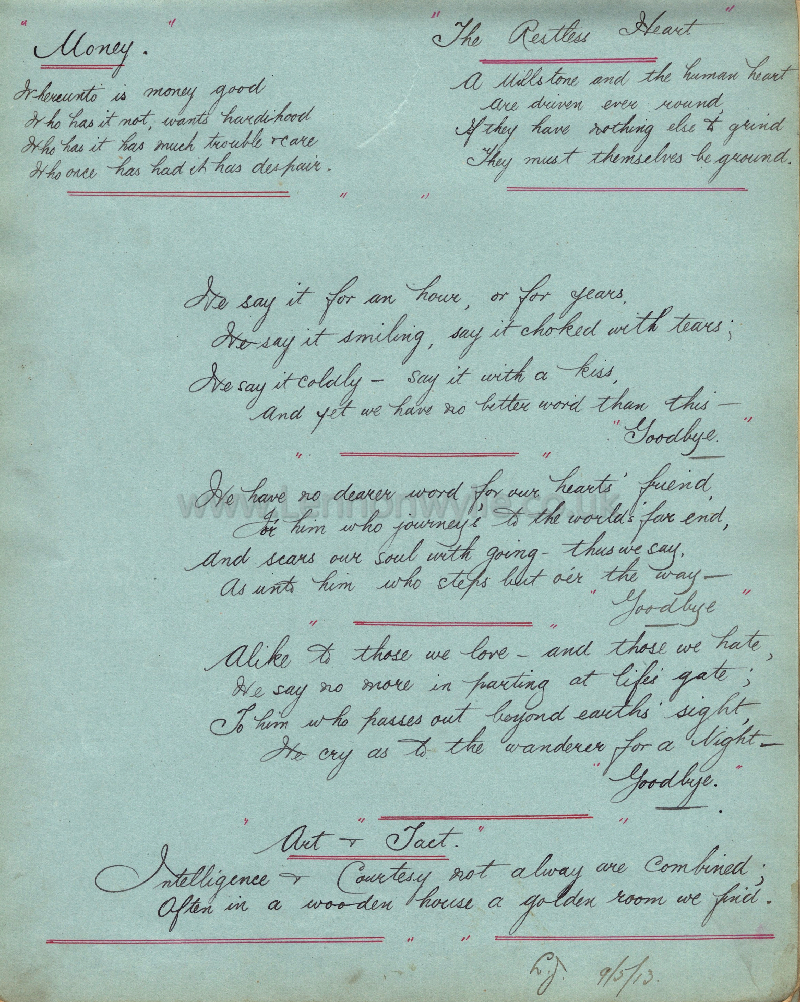 "Money."
Whereunto is money good
Who has it not, wants hardihood
Who has it has much trouble & care
Who once has had it has despair.
"The Restless Heart"
A Millstone and the human heart
Are driven ever round,
If they have nothing else to grind
They must themselves be ground.
We say it for an hour, or for years,
We say it smiling, say it choked with tears;
We say it coldly – say it with a kiss,
And yet we have no better word than this –
"Goodbye."
We have no dearer word for our hearts' friend,
For him who journeys to the world's far end,
And scars our soul with going – thus we say,
As unto him who steps but o'er the way –
"Goodbye"
Alike to those we love – and those we hate,
We say no more in parting at life's gate;
To him who passes out beyond earths' sight,
We cry as to the wanderer for a Night –
"Goodbye."
"Art & Tact."
Intelligence & Courtesy not alway are combined;
Often in a wooden house a golden room we find.
9/5/13.
www.Lennonwylie.co.uk